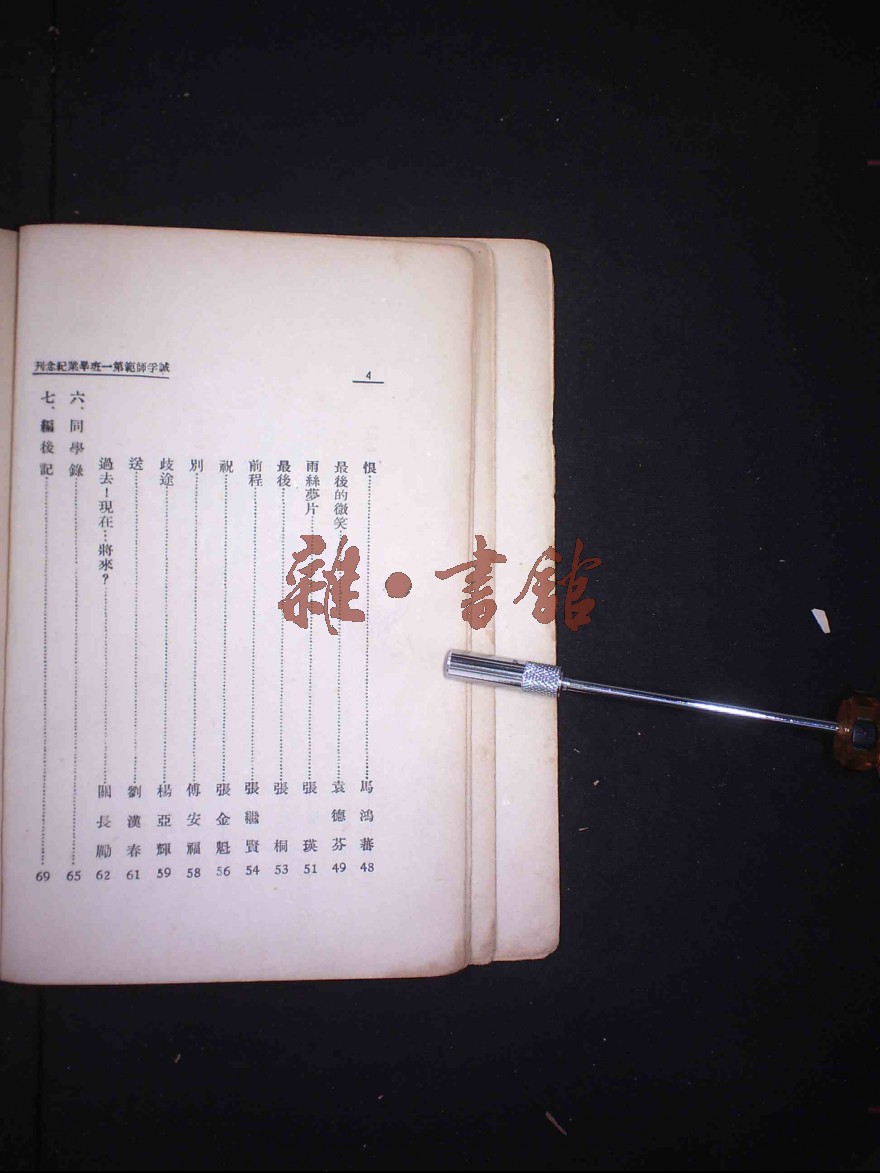 誠孚師範第一班畢業紀念刊
4
恨……馬鴻蕃 48
最後的微笑……袁德芬 49
雨絲夢片……張瑛 51
最後……張桐 53
前程……張繼賢 54
祝……張金魁 56
別……傅安福 58
歧途……楊亞輝 59
送……劉漢春 61
過去!現在…將來?……關長勵 62
六、同學錄……65
七、編後記……69
雜·書館